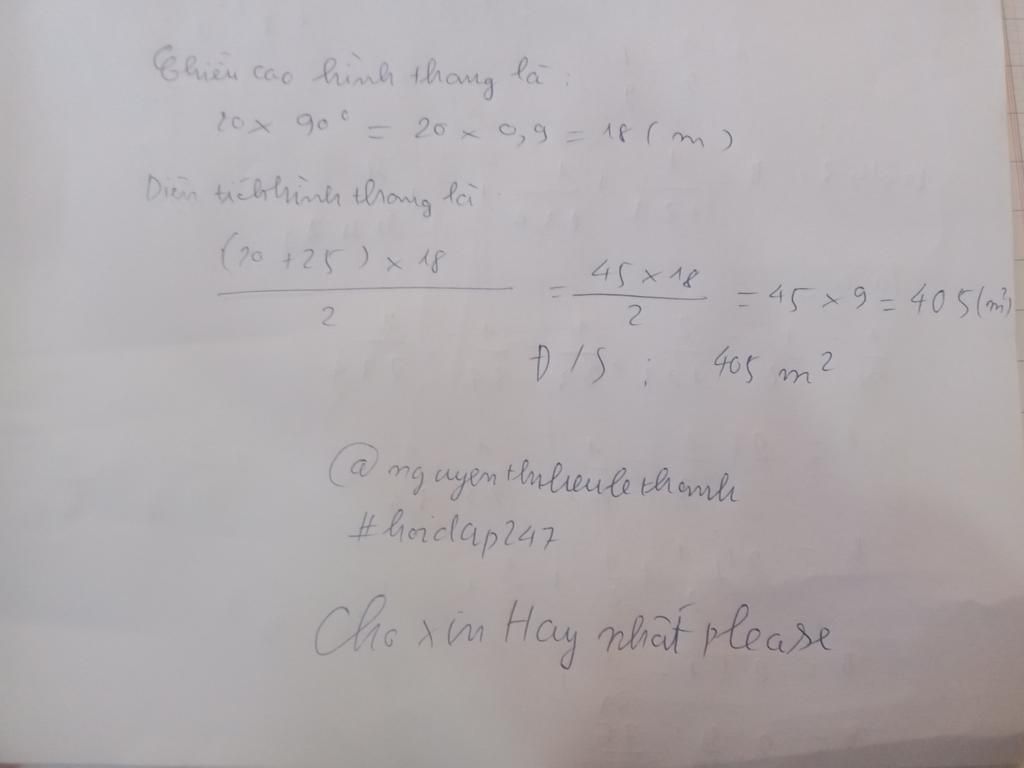 Chiều cao hình thang là :
20 x 90° = 20 x 0,9 = 18 (m)
Diện tích hình thang là
(20 + 25) x 18 / 2 = 45 x 18 / 2 = 45 x 9 = 405 (m²)
Đ/S : 405 m²
@nguyenthihieulethanh
#hoidap247
Cho xin Hay nhất please